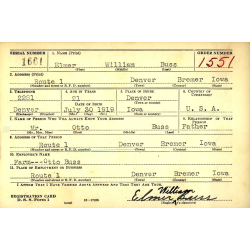 SERIAL NUMBER 1. NAME (Print) ORDER NUMBER
1661 Elmer William Buss 1551
2. ADDRESS (Print)
Route 1 Denver Bremer Iowa
3. TELEPHONE 4. AGE IN YEARS 5. PLACE OF BIRTH 6. COUNTRY OF CITIZENSHIP
2281 21 Denver
Denver July 30 1919 Iowa U. S. A.
7. NAME OF PERSON WHO WILL ALWAYS KNOW YOUR ADDRESS 8. RELATIONSHIP OF THAT PERSON
Mr. Otto Buss Father
9. ADDRESS OF THAT PERSON
Route 1 Denver Bremer Iowa
10. EMPLOYER'S NAME
Farm--Otto Buss
11. PLACE OF EMPLOYMENT OR BUSINESS
Route 1 Denver Bremer Iowa
I AFFIRM THAT I HAVE VERIFIED ABOVE ANSWERS AND THAT THEY ARE TRUE.
William
REGISTRATION CARD Elmer Buss
D. S. S. Form 1